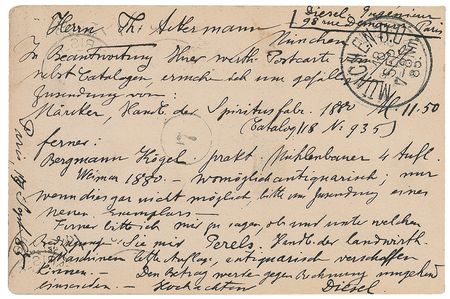 Herrn Th. Ackermann
Diesel, Ingenieur
98 rue Paris
München
In Beantwortung Ihrer werth. Postcarte
nebst Catalogen ersuche ich um gefällige
Zusendung von:
Märcker, Handb. der Spiritusfabr. 1880 M. 11.50
(Catalog 118 № 935)
ferner:
Bergmann Kögel prakt. Mühlenbauer 4 Aufl.
Weimar 1880. – womöglich antiquarisch; nur
wenn dies gar nicht möglich, bitte um Zusendung eines
neuen Exemplars –
Ferner bitte ich mir zu sagen, ob und unter welchen
Sie mir Perels, Handb. der landwirth.
Maschinen letzte Auflage, antiquarisch verschaffen
können. – Den Betrag werde gegen Rechnung umgehend
einsenden. – Hochachtend Diesel
Paris, 17 85
MÜNCHEN